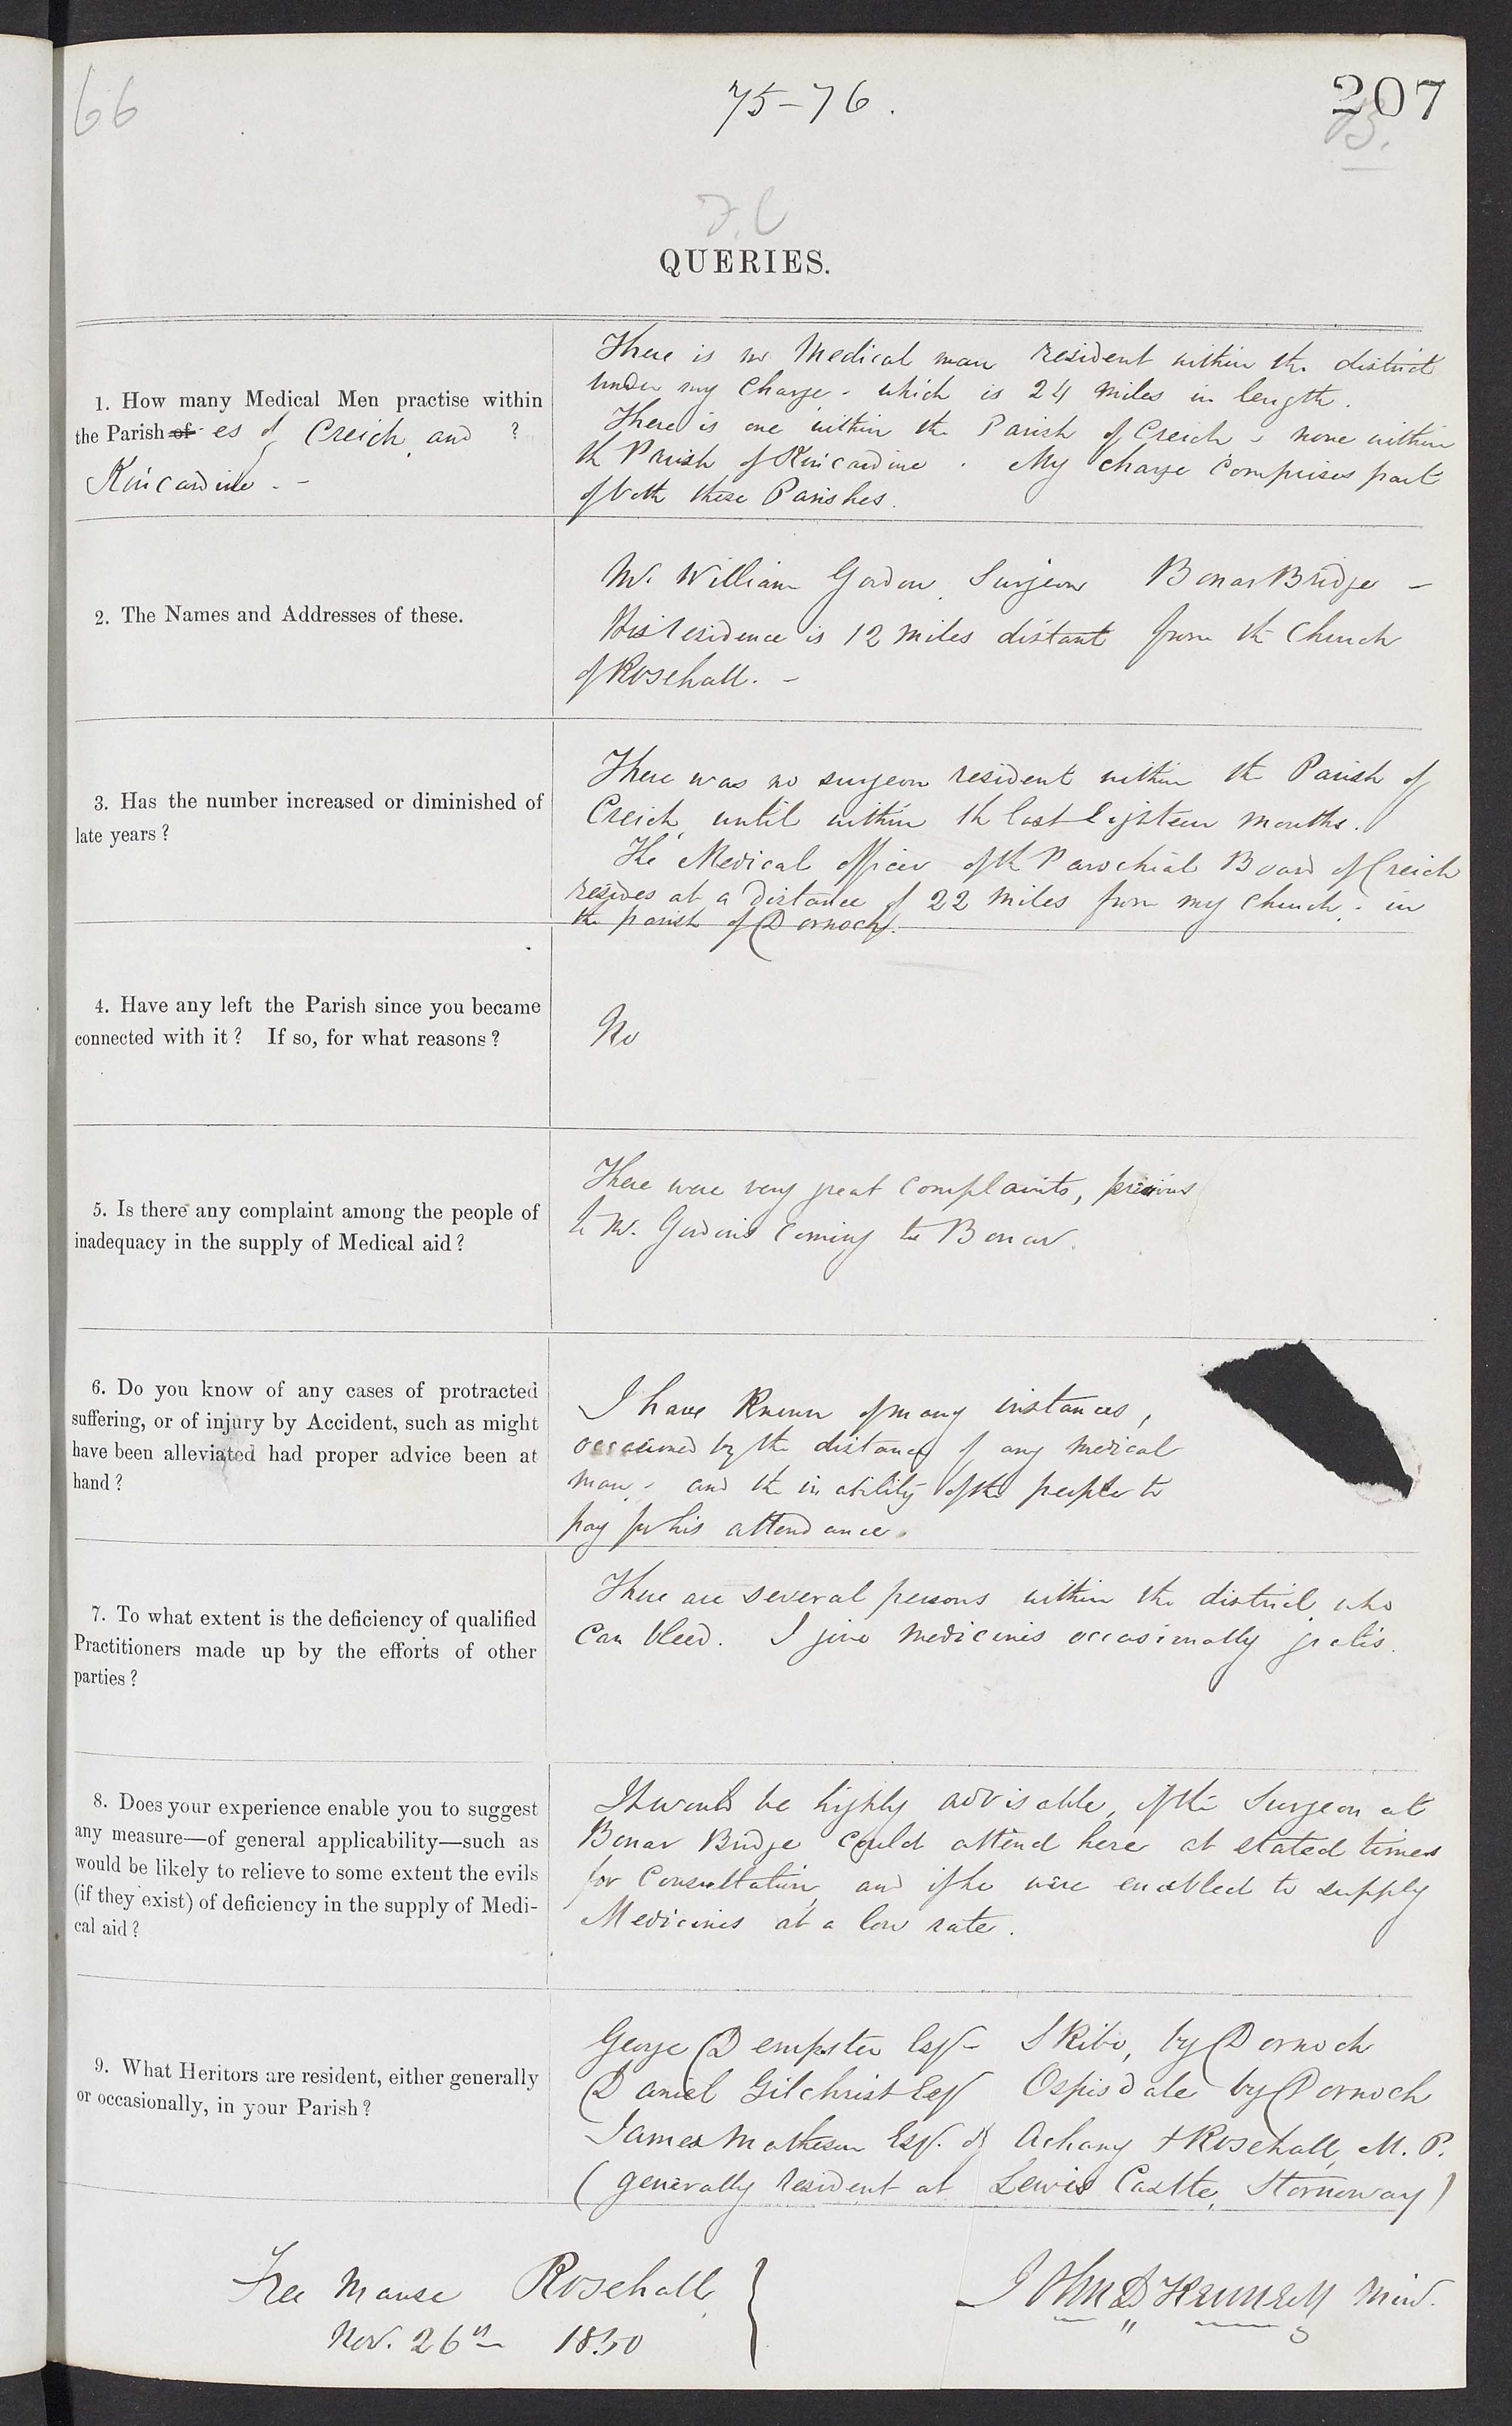 66
75-76.
207
F.C
QUERIES.
1. How many Medical Men practise within
the Parish of es of Creich and ?
Kincardine. -
There is no Medical man resident within the district
under my Charge - which is 24 miles in length.
There is one within the Parish of Creich & none within
th Parish of Kincardine. My charge comprises part
of both these Parishes.
2. The Names and Addresses of these.
Mr. William Gordon, Surgeon Bonar Bridge -
His residence is 12 miles distant from th Church
of Rosehall. -
3. Has the number increased or diminished of
late years?
There was no surgeon resident within th Parish of
Creich, until within th last Eighteen months.
The Medical officer of th Parochial Board of Creich
resides at a distance of 22 miles from my church - in
the parish of Dornoch.
4. Have any left the Parish since you became
connected with it? If so, for what reasons?
No
5. Is there any complaint among the people of
inadequacy in the supply of Medical aid?
There were very great complaints, previous
to Mr. Gordon's coming to Bonar.
6. Do you know of any cases of protracted
suffering, or of injury by Accident, such as might
have been alleviated had proper advice been at
hand?
I have known of many instances,
occasioned by the distance of any medical
man - and th inability of the people to
pay for his attendance.
7. To what extent is the deficiency of qualified
Practitioners made up by the efforts of other
parties?
There are several persons within the district who
can bleed. I give medicines occasionally gratis.
8. Does your experience enable you to suggest
any measure—of general applicability—such as
would be likely to relieve to some extent the evils
(if they exist) of deficiency in the supply of Medi-
cal aid?
It would be highly advisable, if the Surgeon at
Bonar Bridge could attend here at stated times
for Consultation, and if he were enabled to supply
Medicines at a low rate.
9. What Heritors are resident, either generally
or occasionally, in your Parish?
George Dempster Esqr Skibo, by Dornoch
Daniel Gilchrist Esqr Ospisdale by Dornoch
James Matheson Esqr. of Achany & Rosehall, M.P.
(generally resident at Lewis Castle, Stornoway)
Free Manse Rosehall
Nov. 26th 1850
John D Kennedy Minr.